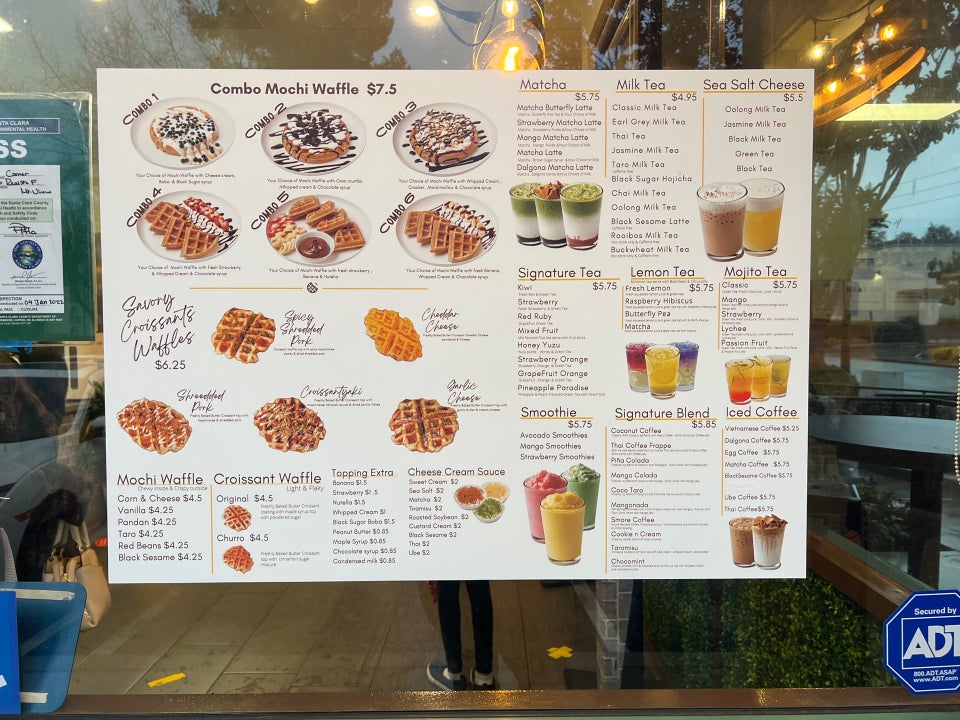 Combo Mochi Waffle $7.5
COMBO 1
COMBO 2
COMBO 3
Your Choice of Mochi Waffle with Cheese cream,
Boba & Black Sugar syrup
Your Choice of Mochi Waffle with Oreo crumbs
,Whipped cream & Chocolate syrup
Your Choice of Mochi Waffle with Whipped Cream,
Cracker, Marshmallow & Chocolate syrup
COMBO 4
COMBO 5
COMBO 6
Your Choice of Mochi Waffle with fresh Strawberry
& Whipped Cream & Chocolate syrup
Your Choice of Mochi Waffle with fresh strawberry,
Banana & Nutella
Your Choice of Mochi Waffle with fresh Banana,
Whipped Cream & Chocolate syrup
Savory
Croissants
Waffles
$6.25
Spicy
Shredded
Pork
Cheddar
Cheese
Shredded
Pork
Croissantyaki
Garlic
Cheese
Mochi Waffle
Chewy inside & Crispy outside
Corn & Cheese $4.5
Vanilla $4.25
Pandan $4.25
Taro $4.25
Red Beans $4.25
Black Sesame $4.25
Croissant Waffle
Light & Flaky
Original $4.5
Freshly Baked Butter Croissant
coating with maple syrup top
with powdered sugar
Churro $4.5
Freshly Baked Butter Croissant
top with cinnamon sugar
mixture
Topping Extra
Banana $1.5
Strawberry $1.5
Nutella $1.5
Whipped Cream $1
Black Sugar Boba $1.5
Peanut Butter $0.85
Maple Syrup $0.85
Chocolate syrup $0.85
Condensed milk $0.85
Cheese Cream Sauce
Sweet Cream $2
Sea Salt $2
Matcha $2
Tiramisu $2
Roasted Soybean $2
Custard Cream $2
Black Sesame $2
Thai $2
Ube $2
Matcha
$5.75
Matcha Butterfly Latte
Strawberry Matcha Latte
Mango Matcha Latte
Matcha Latte
Dalgona Matcha Latte
Milk Tea
$4.95
Classic Milk Tea
Earl Grey Milk Tea
Thai Tea
Jasmine Milk Tea
Taro Milk Tea
Caffeine Free
Black Sugar Hojicha
Chai Milk Tea
Oolong Milk Tea
Black Sesame Latte
Caffeine free
Rooibos Milk Tea
Hot drink only & Caffeine free
Buckwheat Milk Tea
Hot drink only & Caffeine free
Sea Salt Cheese
$5.5
Oolong Milk Tea
Jasmine Milk Tea
Black Milk Tea
Green Tea
Black Tea
Signature Tea
$5.75
Kiwi
Strawberry
Red Ruby
Mixed Fruit
Honey Yuzu
Strawberry Orange
GrapeFruit Orange
Pineapple Paradise
Lemon Tea
$5.75
Fresh Lemon
Raspberry Hibiscus
Butterfly Pea
Matcha
Mojito Tea
$5.75
Classic
Mango
Strawberry
Lychee
Passion Fruit
Smoothie
$5.75
Avocado Smoothies
Mango Smoothies
Strawberry Smoothies
Signature Blend
$5.85
Coconut Coffee
Thai Coffee Frappe
Piña Colada
Mango Colada
Coco Taro
Mangonada
Smore Coffee
Cookie n Cream
Taromisu
Chocomint
Iced Coffee
Vietnamese Coffee $5.25
Dalgona Coffee $5.75
Egg Coffee $5.75
Matcha Coffee $5.75
BlackSesame Coffee $5.75
Ube Coffee $5.75
Thai Coffee $5.75
Secured by
ADT
800.ADT.ASAP
www.ADT.com